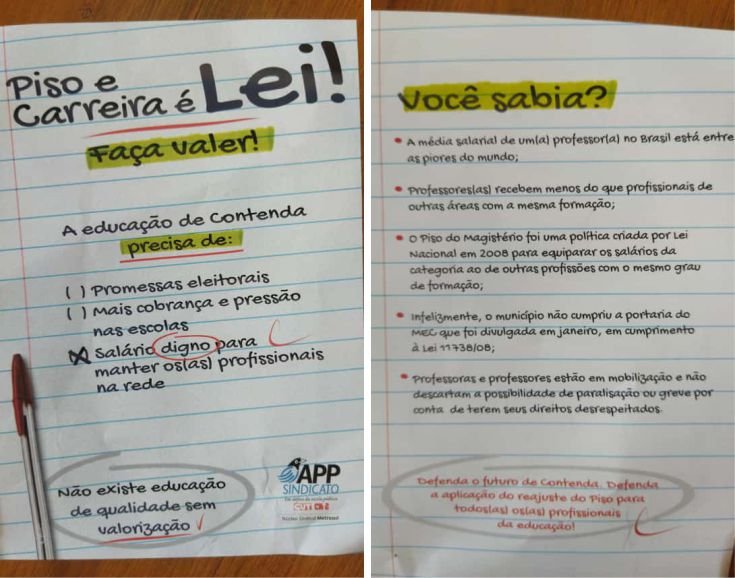 Piso e
Carreira é Lei!
Faça valer!
A educação de Contenda
precisa de:
( ) Promessas eleitorais
( ) Mais cobrança e pressão
nas escolas
(X) Salário digno para
manter os(as) profissionais
na rede
Não existe educação
de qualidade sem
valorização
APP
SINDICATO
Em defesa da escola pública
CUT CNTE
Núcleo Sindical Metrosul
Você sabia?
• A média salarial de um(a) professor(a) no Brasil está entre
as piores do mundo;
• Professores(as) recebem menos do que profissionais de
outras áreas com a mesma formação;
• O Piso do Magistério foi uma política criada por Lei
Nacional em 2008 para equiparar os salários da
categoria ao de outras profissões com o mesmo grau
de formação;
• Infelizmente, o município não cumpriu a portaria do
MEC que foi divulgada em janeiro, em cumprimento
à Lei 11738/08;
• Professoras e professores estão em mobilização e não
descartam a possibilidade de paralisação ou greve por
conta de terem seus direitos desrespeitados.
Defenda o futuro de Contenda. Defenda
a aplicação do reajuste do Piso para
todos(as) os(as) profissionais
da educação!